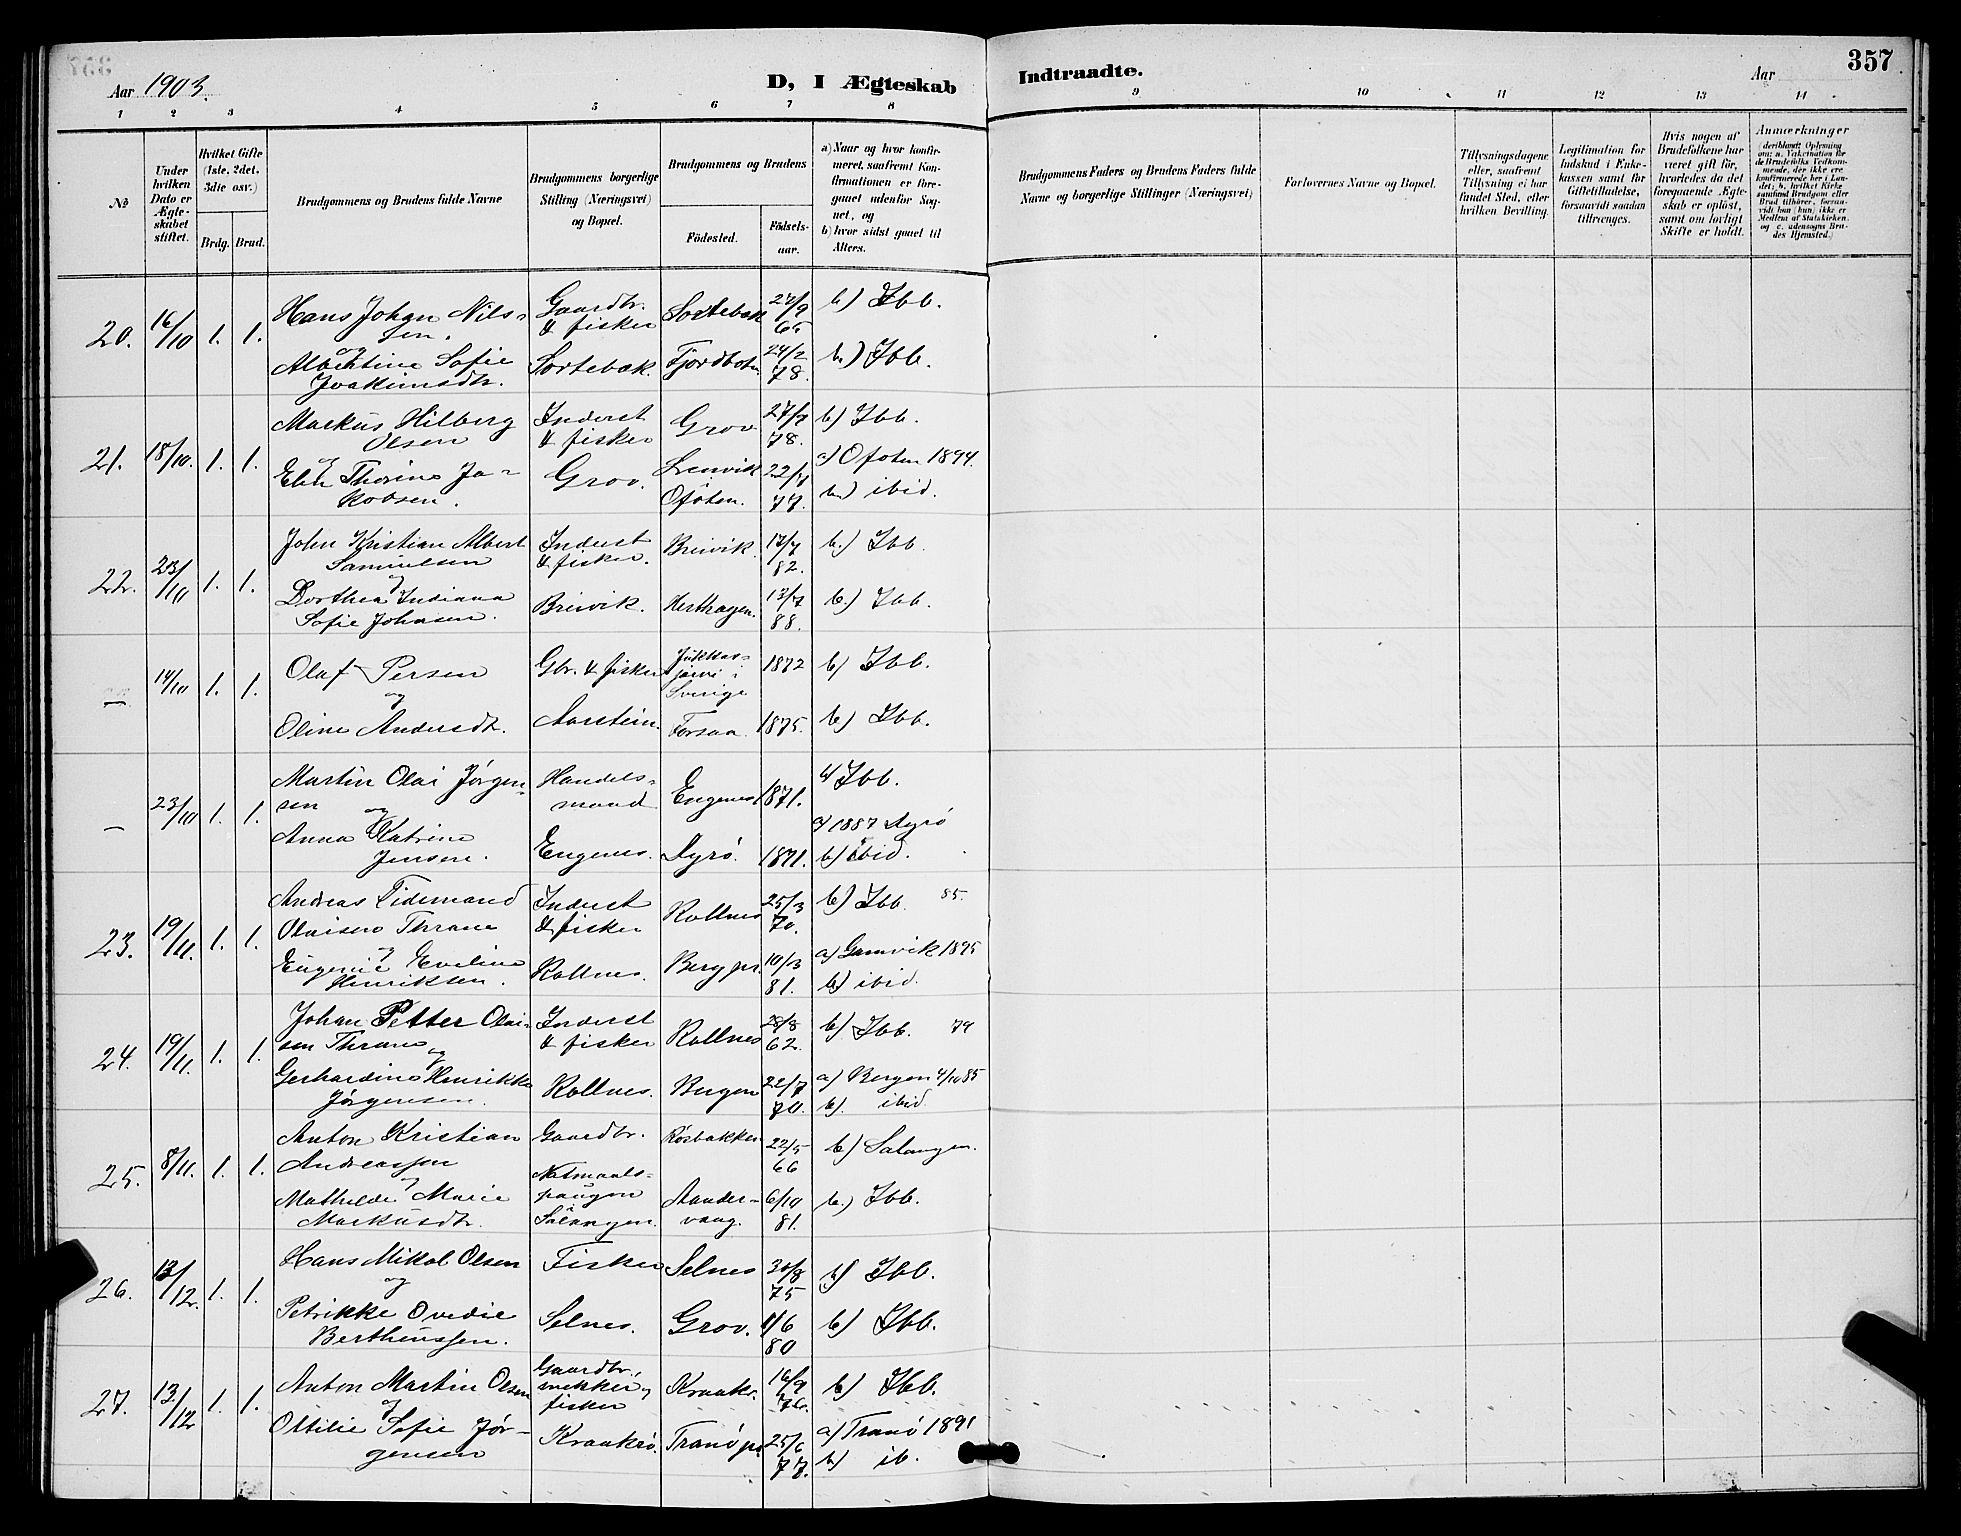 Aar 1903.
D, I Ægteskab
Indtraadte.
Aar
357
1 2 3 4 5 6 7 8
9 10 11 12 13 14
No
Under hvilken Dato er Ægteskabet stiftet.
Hvilket Gifte (1ste, 2det, 3die osv.)
Brdg. Brud.
Brudgommens og Brudens fulde Navne
Brudgommens borgerlige Stilling (Næringsvei) og Bopæl.
Brudgommens og Brudens
Födested.
Födsels-aar.
a) Naar og hvor konfirmeret, saafremt Konfirmationen er foregaaet udenfor Sognet, og
b) hvor sidst gaaet til Alters.
Brudgommens Faders og Brudens Faders fulde Navne og borgerlige Stillinger (Næringsvei)
Forlovernes Navne og Bopæl.
Tillysningsdagene eller, saafremt Tillysning ei har fundet Sted, efter hvilken Bevilling.
Legitimation for Indskud i Enkekassen samt for Giftetilladelse, forsaavidt saadan tiltrænges.
Hvis nogen af Brudefolkene har været gift för, hvorledes da det foregaaende Ægteskab er oplöst, samt om lovligt Skifte er holdt.
Anmerkninger
20. 16/10 1. 1.
Hans Johan Nilssen.
og
Albertine Sofie
Joakimsdtr.
Gaardbr.
& fisker
Sortebak.
Sortebak 27/9 65 b) Ibb.
Fjordbotn. 24/2 78. b.) Ibb.
21. 18/10. 1. 1.
Markus Hilberg
Olsen
og
Thorine Ja-
kobsen.
Inderst
& fisker
Grov.
Grov 78. b) Ibb.
Lenvik
Ofoten. 77. a) Ofoten 1894.
b.) ibid.
22. 23/10 1. 1.
John Kristian Albert
Samuelsen
og
Dorthea Indiana
Sofie Johnsen.
Inderst
& fisker.
Breivik.
Breivik. 82. b.) Ibb.
88. b.) Ibb.
— 14/10 1. 1.
Olaf Persen
og
Oline Andersdtr.
Gbr. & fisker
Aarstein.
Jukkas-
järvi i
Sverige 1872 b) Ibb.
Forsaa. 1875. b) Ibb.
— 23/10 1. 1.
Martin Olai Jörgen-
sen
og
Anna Katrine
Jensen.
Handels-
mand
Engenes.
Engenes 1871. b) Ibb.
Dyrö. 1871. a) 1887 Dyrö
b) ibid.
23. 19/11. 1. 1.
Andreas Tidemand
Olaisen Thrane
og
Eugenie Eveline
Henriksen.
Inderst
& fisker
Rollnes.
Rollnes 25/3 70. b) Ibb. 85.
Berg pr. 10/3 81. a) Gamvik 1895
b) ibid.
24. 19/11. 1. 1.
Johan Petter Olai-
sen Thrane
og
Gerhardine Henrikke
Jörgensen.
Inderst
& fisker
Rollnes.
Rollnes 28/8 62. b) Ibb. 79
Bergen 22/7 70. a) Bergen 4/10 85
b). ibid.
25. 8/11. 1. 1.
Anton Kristian
Andreassen
og
Mathilde Marie
Markusdtr.
Gaardbr.
Salangen.
Rösbakken 22/5 66 b) Salangen.
Aander-
vaag. 6/10 81. b.) Ibb.
26. 13/12. 1. 1.
Hans Mikal Olsen
og
Petrikke Ovedie
Bertheussen.
Fisker
Selnes.
Selnes 30/8 75 b) Ibb.
Grov. 1/6 80 b) Ibb.
27. 13/12 1. 1.
Anton Martin Olsen
og
Ottilie Sofie Jör-
gensen
Gaardbr.,
snekker og
fisker
Kraakrö.
Kraakr. 16/9 76. b) Ibb.
Tranö pr. 25/6 77. a) Tranö 1891
b) ib.